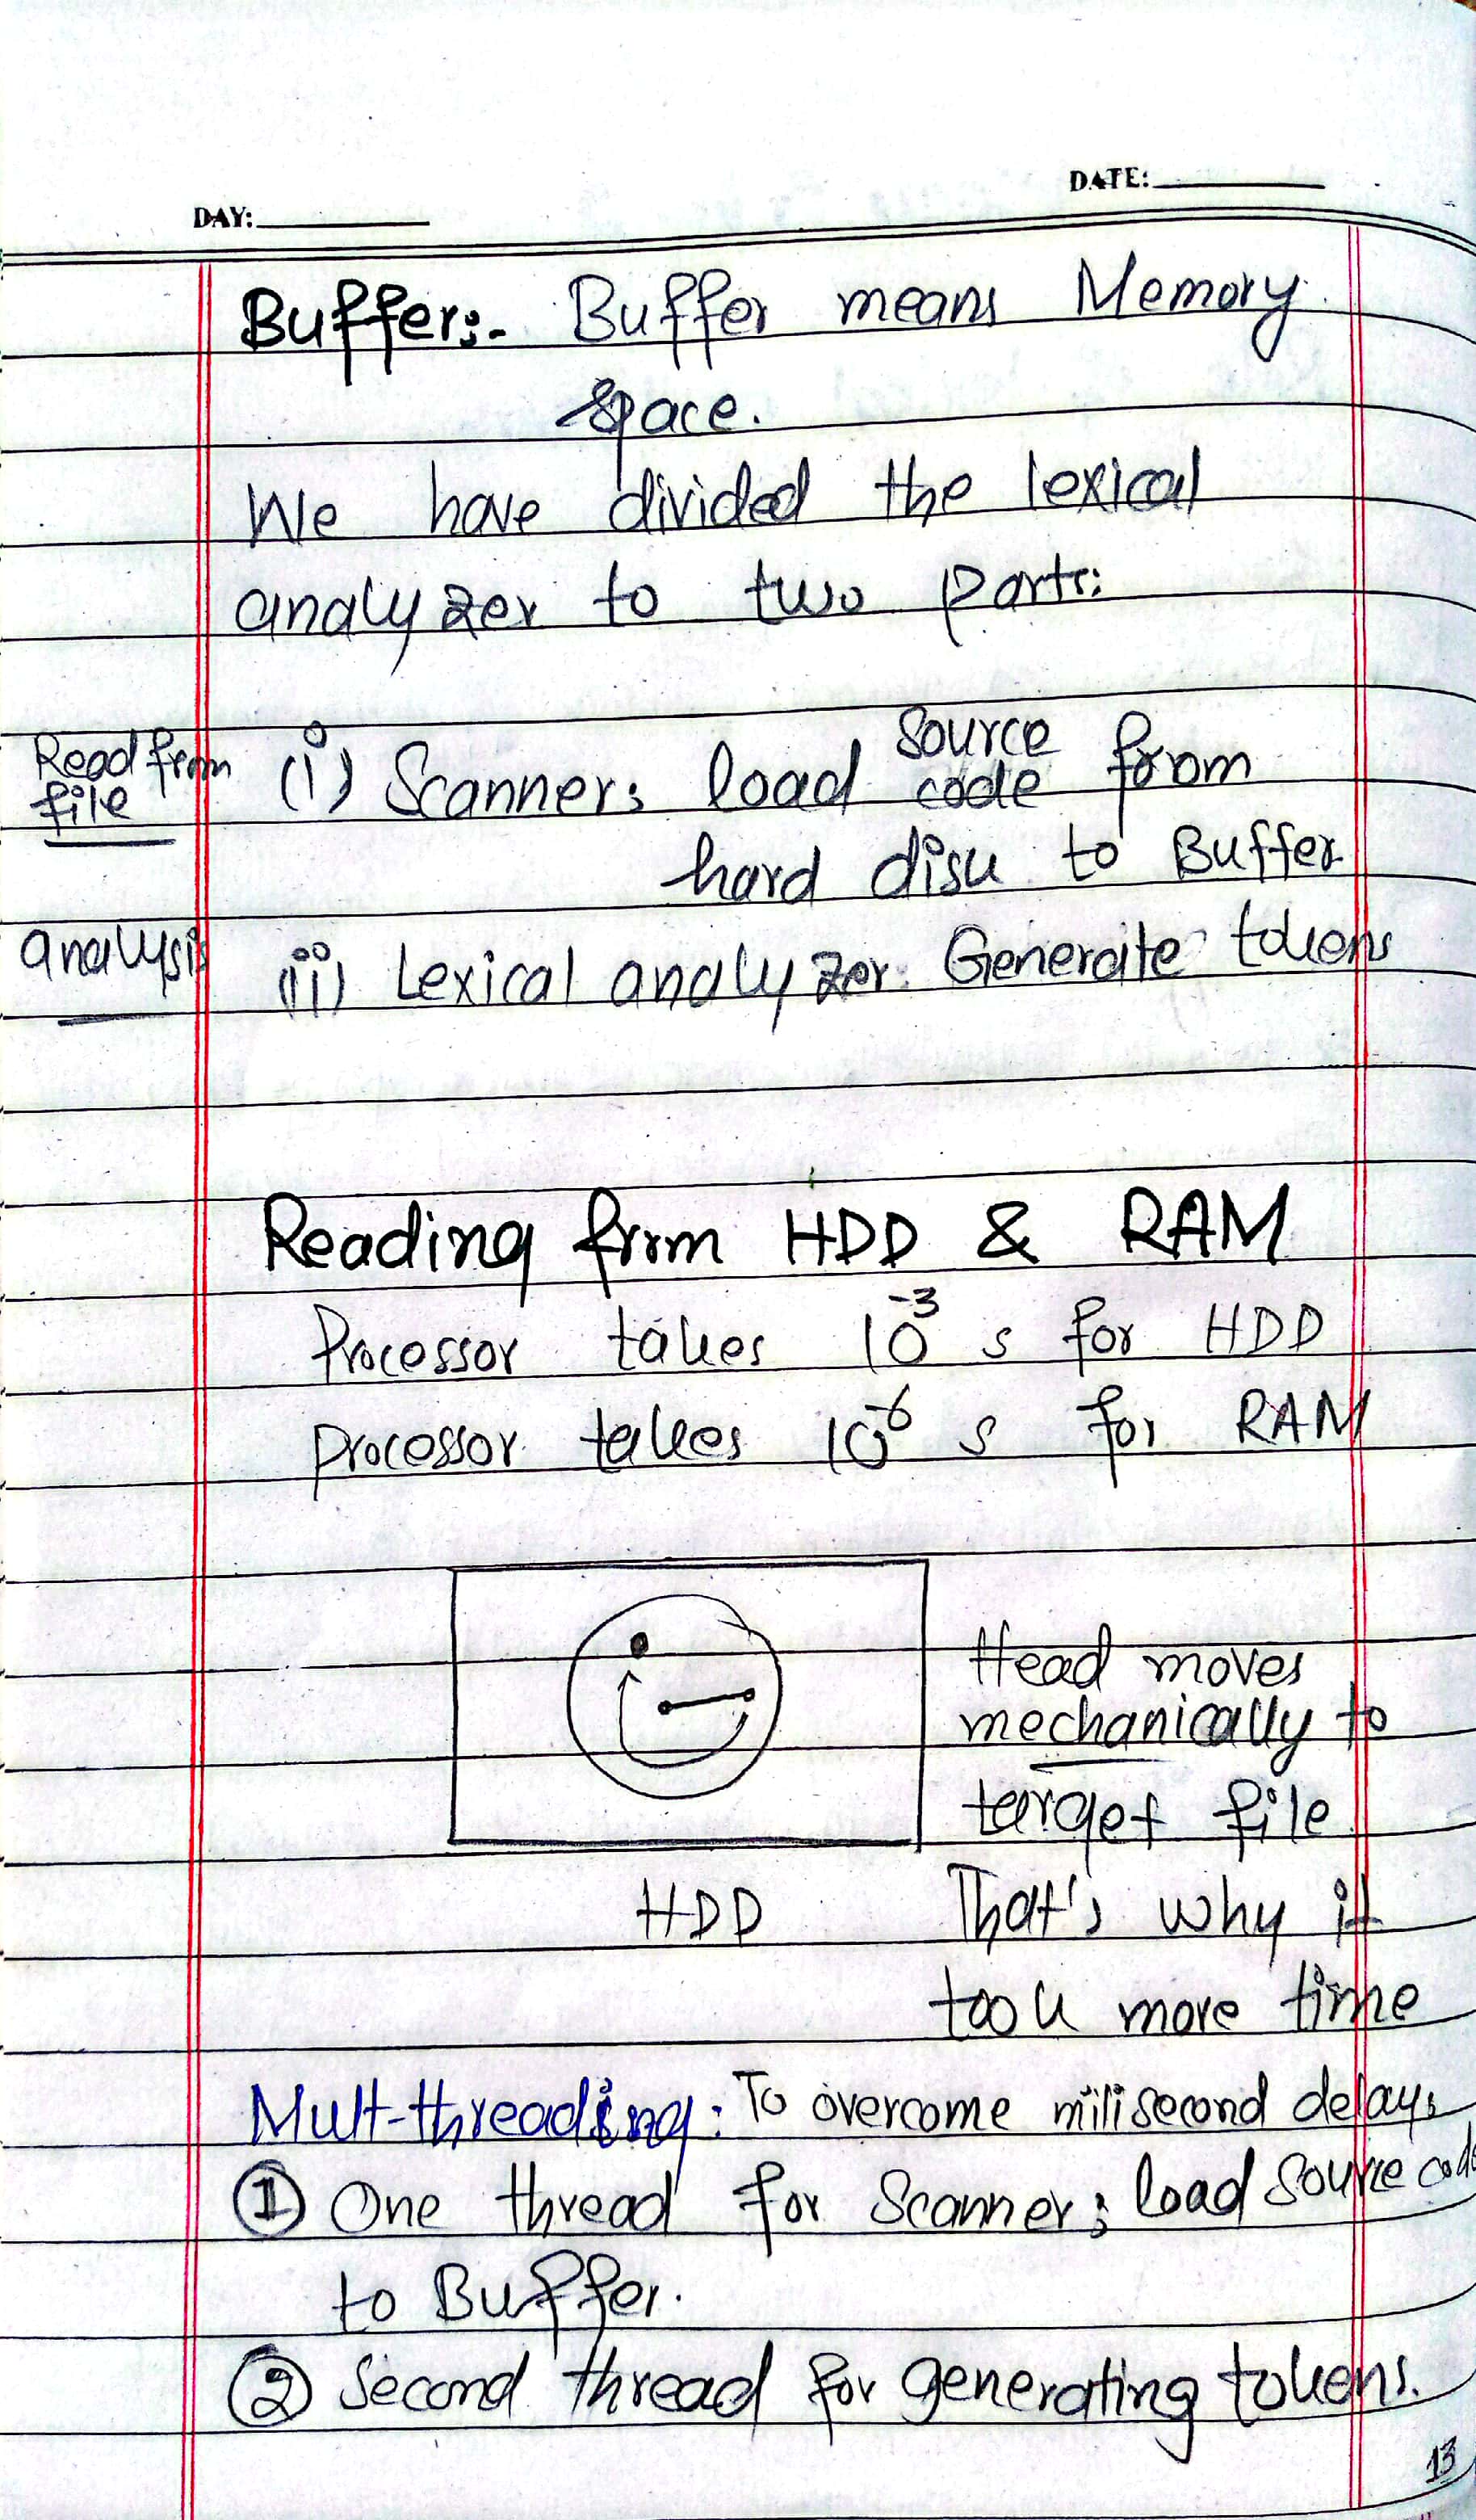 DATE:
DAY:
Buffer:- Buffer means Memory
space.
We have divided the lexical
analyzer to two parts:
Read from
file
(i) Scanner: load source code from
hard disk to Buffer
analysis
(ii) Lexical analyzer: Generate tokens
Reading from HDD & RAM
Processor takes 10⁻³ s for HDD
processor takes 10⁻⁶ s for RAM
Head moves
mechanically to
target file
HDD That's why it
took more time
Mult-threading: To overcome milisecond delays
① One thread for Scanner; load source code
to Buffer.
② Second thread for generating tokens.
13